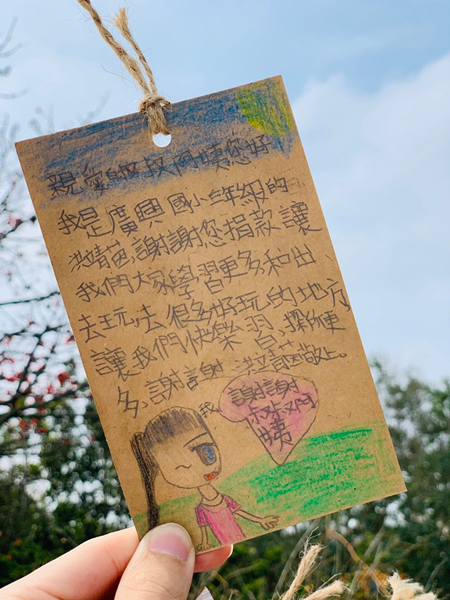 親愛的叔叔阿姨您好!
我是廣興國小五年級的
謝謝您捐款讓
我們大家學習更多和出
去玩、去很多好玩的地方
讓我們快樂習、探
多,謝謝 敬上。
我
謝謝
叔叔阿
姨